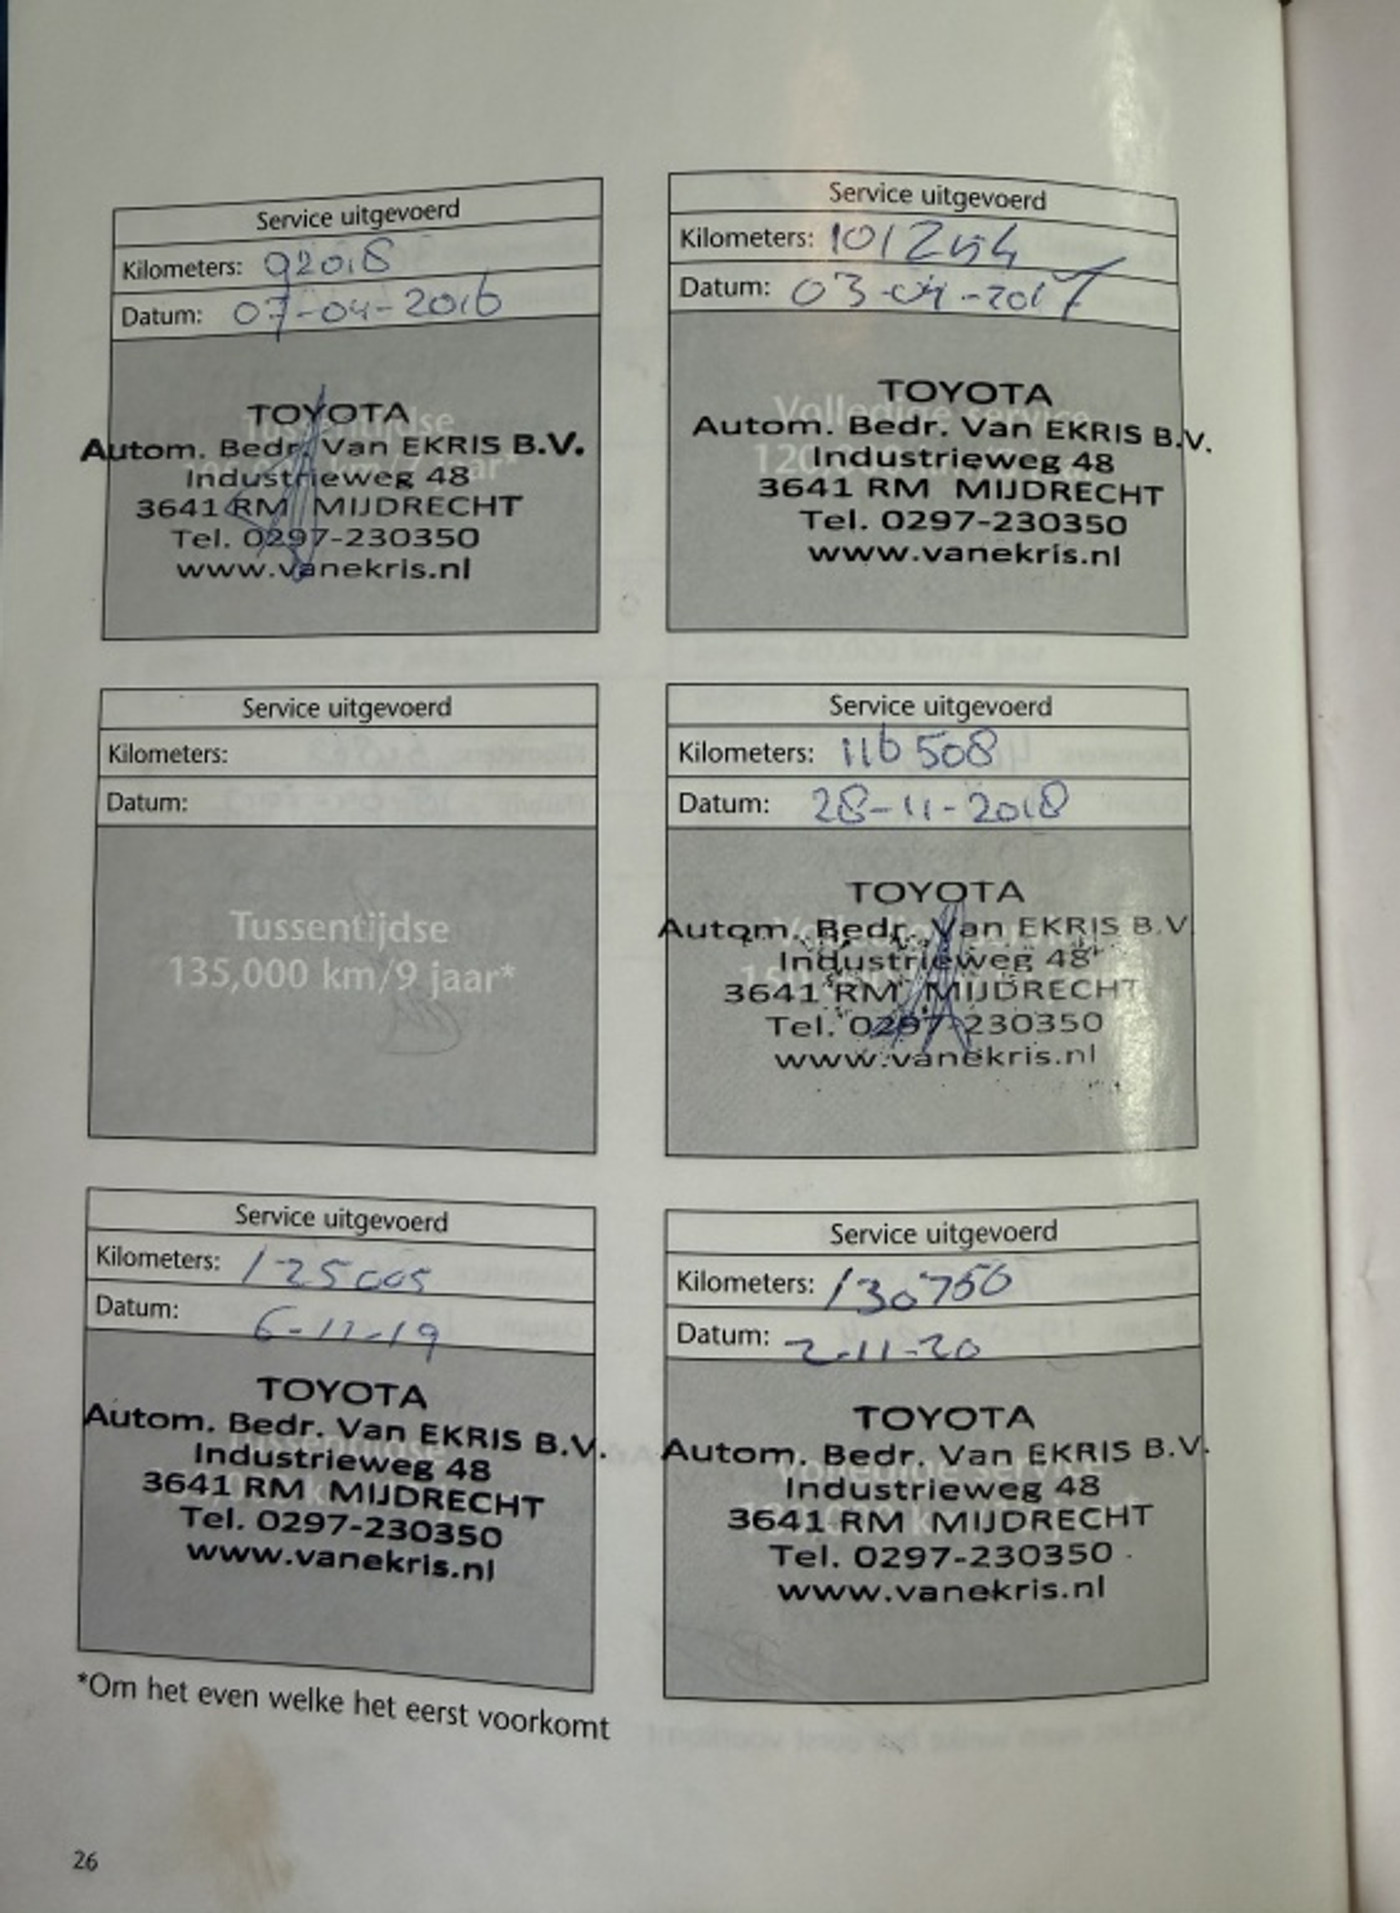 Service uitgevoerd
Kilometers: 92018
Datum: 07-04-2016
TOYOTA
Autom. Bedr. Van EKRIS B.V.
Industrieweg 48
3641 RM MIJDRECHT
Tel. 0297-230350
www.vanekris.nl
Service uitgevoerd
Kilometers: 101254
Datum: 03-04-2017
Volledige service
TOYOTA
Autom. Bedr. Van EKRIS B.V.
Industrieweg 48
3641 RM MIJDRECHT
Tel. 0297-230350
www.vanekris.nl
Service uitgevoerd
Kilometers:
Datum:
Tussentijdse
135,000 km/9 jaar*
Service uitgevoerd
Kilometers: 116508
Datum: 28-11-2018
TOYOTA
Autom. Bedr. Van EKRIS B.V.
Industrieweg 48
3641 RM MIJDRECHT
Tel. 0297-230350
www.vanekris.nl
Service uitgevoerd
Kilometers: 125005
Datum: 6-11-19
TOYOTA
Autom. Bedr. Van EKRIS B.V.
Industrieweg 48
3641 RM MIJDRECHT
Tel. 0297-230350
www.vanekris.nl
Service uitgevoerd
Kilometers: 130750
Datum: 2-11-20
TOYOTA
Autom. Bedr. Van EKRIS B.V.
Industrieweg 48
3641 RM MIJDRECHT
Tel. 0297-230350
www.vanekris.nl
*Om het even welke het eerst voorkomt
26